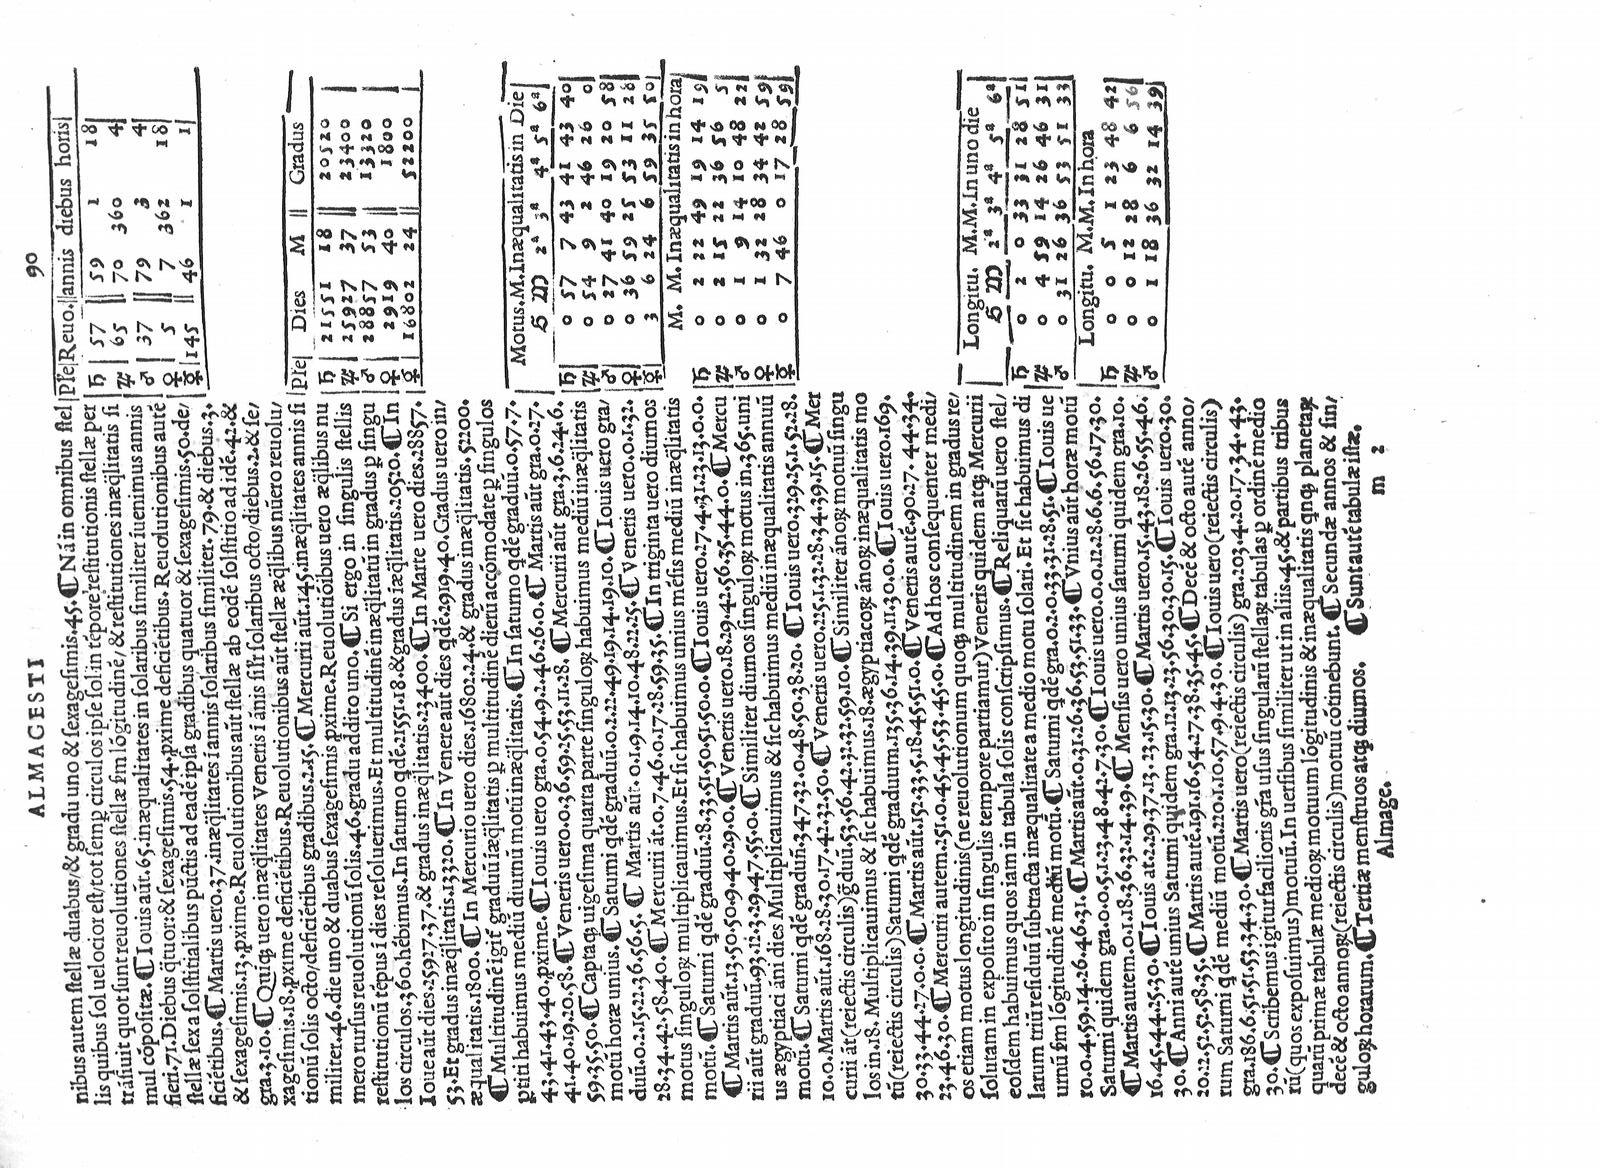 ALMAGESTI
90
nibus autem stellæ duabus/& gradu uno & sexagesimis.45. ℂ Nā in omnibus stel
lis quibus sol uelocior est/tot semp circulos ipse sol in tēpore restitutionis stellæ per
trāsiuit quot sunt reuolutiones stellæ s̄m lōgitudinē/& restitutiones inæq̄litatis si
mul cōpositæ. ℂ Iouis aūt.65.inæqualitates in solaribus similiter iuenimus annis
fieri.71.Diebus q̄tuor:& sexagesim.54.pxime deficiētibus. Reuolutionibus autē
stellæ sex a solstitialibus pūctis ad eadē ipsa gradibus quatuor & sexagesimis.50.de/
ficiētibus. ℂ Martis uero.37.inæq̄litates i annis solaribus similiter.79.& diebus.3.
& sexagesimis.13.pxime.Reuolutionibus aūt stellæ ab eodē solstitio ad idē.42.&
gra.3.10. ℂ Quiq; uero inæq̄litates Veneris i ánis sil̄r solaribus octo/diebus.2.& se/
xagesimis.18.pxime deficiētibus.Reuolutionibus aūt stellæ æq̄libus nūero reuolu/
tionū solis octo/deficiētibus gradibus.2.15. ℂ Mercurii aūt.145.inæq̄litates annis si
militer.46.die uno & duabus sexagesimis pxime.Reuolutiōibus uero æq̄libus nu
mero rursus reuolutionū solis.46.gradu addito uno. ℂ Si ergo in singulis stellis
restitutionū tēpus i dies resoluerimus.Et multitudinē inæq̄litatū in gradus p singu
los circulos.360.hēbimus.In saturno qdē.21551.18.& gradus iæq̄litatis.20520. ℂ In
Ioue aūt dies.25927.37.& gradus inæq̄litatis.23400. ℂ In Marte uero dies.28857.
53.Et gradus inæq̄litatis.13320. ℂ In Venere aūt dies qdē.2919.40.Gradus uero in/
æqualitatis.1800. ℂ In Mercurio uero dies.16802.24.& gradus inæq̄litatis.52200.
ℂ Multitudinē igit̄ graduū iæq̄litatis p multitudinē dierū accōmodate p singulos
ptiti habuimus mediū diurnū motū inæq̄litatis. ℂ In saturno qdē graduū.0.57.7.
43.41.43.40.pxime. ℂ Iouis uero gra.0.54.9.2.46.26.0. ℂ Martis aūt gra.0.27.
41.40.19.20.58. ℂ Veneris uero.0.36.59.25.53.11.28. ℂ Mercurii aūt gra.3.6.24.6.
59.35.50. ℂ Captaq; uigesima quarta parte singulorū habuimus mediū inæq̄litatis
motū horæ unius. ℂ Saturni qdē graduū.0.2.22.49.19.14.19.10. ℂ Iouis uero gra/
duū.0.2.15.22.36.56.5. ℂ Martis aūt.0.1.9.14.10.48.22.25. ℂ Veneris uero.0.1.32.
28.34.42.58.40. ℂ Mercurii át.0.7.46.0.17.28.59.35. ℂ In triginta uero diurnos
motus singulorū multiplicauimus.Et sic habuimus unius mēsis mediū inæq̄litatis
motū. ℂ Saturni qdē graduū.28.33.51.50.51.50.0. ℂ Iouis uero.27.4.31.23.13.0.0.
ℂ Martis aūt.13.50.50.9.40.29.0. ℂ Veneris uero.18.29.42.56.35.44.0. ℂ Mercu
rii aūt graduū.93.12.3.29.47.55.0. ℂ Similiter diurnos singulorū motus in.365.uni
us ægyptiaci áni dies Multiplicauimus & sic habuimus mediū inæqualitatis annuū
motū. ℂ Saturni qdē graduū.347.32.0.48.50.38.20. ℂ Iouis uero.329.25.1.52.28.
10.0.Martis aūt.168.28.30.17.42.32.50. ℂ Veneris uero.225.1.32.28.34.39.15. ℂ Mer
curii át(reiectis circulis)g̅duū.53.56.42.32.32.59.10. ℂ Similiter ánorū motuū singu
los in.18. Multiplicauimus & sic habuimus.18.ægyptiacorū ánorū inæqualitatis mo
tū(reiectis circulis)Saturni qdē graduum.135.36.14.39.11.30.0. ℂ Iouis uero.169.
30.33.44.27.0.0. ℂ Martis aūt.152.33.5.18.45.51.0. ℂ Veneris autē.90.27.44.34.
23.46.30. ℂ Mercurii autem.251.0.45.45.53.45.0. ℂ Ad hos consequenter medi/
os etiam motus longitudinis(ne reuolutionum quoq; multitudinem in gradus re/
solutam in exposito in singulis tempore partiamur)Veneris quidem atq; Mercurii
eosdem habuimus quos iam in tabula solis conscripsimus. ℂ Reliquarū uero stel/
larum triū residuū subtracta inæqualitate a medio motu solari. Et sic habuimus di
urnū s̄m lōgitudinē mediū motū. ℂ Saturni qdē gra.0.2.0.33.31.28.51. ℂ Iouis ue
ro.0.4.59.14.26.46.31. ℂ Martis aūt.0.31.26.36.53.51.33. ℂ Vnius aūt horæ motū
Saturni quidem gra.0.0.5.1.23.48.42.7.30. ℂ Iouis uero.0.0.12.28.6.6.56.17.30.
ℂ Martis autem.0.1.18.36.32.14.39. ℂ Mensis uero unius saturni quidem gra.1.0.
16.45.44.25.30. ℂ Iouis at.2.29.37.13.23.15.30. ℂ Martis uero.15.43.18.26.55.46.
30. ℂ Anni autē unius Saturni quidem gra.12.13.23.56.30.30.15. ℂ Iouis uero.30.
20.22.52.52.58.35. ℂ Martis autē.191.16.54.27.38.35.45. ℂ Decē & octo autē anno/
rum Saturni qdē mediū motū.220.1.10.57.9.4.30. ℂ Iouis uero(reiectis circulis)
gra.186.6.51.51.53.34.30. ℂ Martis uero(reiectis circulis) gra.203.4.20.17.34.43.
30. ℂ Scribemus igitur facilioris gr̄a usus singularū stellarū tabulas p ordinē medio
rū(quos exposuimus)motuū.In uersibus similiter ut in aliis.45.& partibus tribus
quarū primæ tabulæ mediorū motuum lōgitudinis & inæqualitatis qnq; planetarū
decē & octo annorū(reiectis circulis)motum cōtinebunt. ℂ Secundæ annos & sin/
gulorū horarum. ℂ Tertiæ menstruos atq; diurnos. ℂ Sunt autē tabulæ istæ.
Almage. m 2
pl̄e Reuo. annis diebus horis
♄ 57 59 1 18
♃ 65 70 360 4
♂ 37 79 3 4
♀ 5 7 362 18
☿ 145 46 1 1
pl̄e Dies M Gradus
♄ 21551 18 20520
♃ 25927 37 23400
♂ 28857 53 13320
♀ 2919 40 1800
☿ 16802 24 52200
Motus.M.Inæqualitatis in Die
G M 2ª 3ª 4ª 5ª 6ª
♄ 0 57 7 43 41 43 40
♃ 0 54 9 2 46 26 0
♂ 0 27 41 40 19 20 58
♀ 0 36 59 25 53 11 28
☿ 3 6 24 6 59 35 50
M. M.Inæqualitatis in hora
♄ 0 2 22 49 19 14 19
♃ 0 2 15 22 36 56 5
♂ 0 1 9 14 10 48 22
♀ 0 1 32 28 34 42 59
☿ 0 7 46 0 17 28 59
Longitu. M.M.In uno die
G M 2ª 3ª 4ª 5ª 6ª
♄ 0 2 0 33 31 28 51
♃ 0 4 59 14 26 46 31
♂ 0 31 26 36 53 51 33
Longitu. M.M.In hora
♄ 0 0 5 1 23 48 42
♃ 0 0 12 28 6 6 56
♂ 0 1 18 36 32 14 39